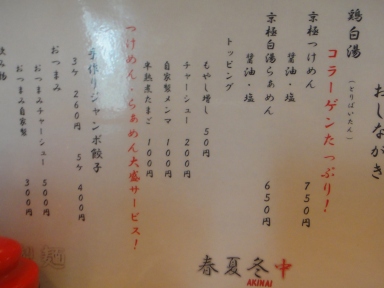 おしながき
鶏白湯
(とりぱいたん)
コラーゲンたっぷり!
京極つけめん 750円
醤油・塩
京極白湯らぁめん 650円
醤油・塩
トッピング
もやし増し 50円
チャーシュー 200円
自家製メンマ 100円
半熟煮たまご 100円
つけめん・らぁめん大盛サービス!
手作りジャンボ餃子
3ケ 260円 5ケ 400円
おつまみ
おつまみチャーシュー 500円
おつまみ自家製 300円
春夏冬中
AKINAI
麺